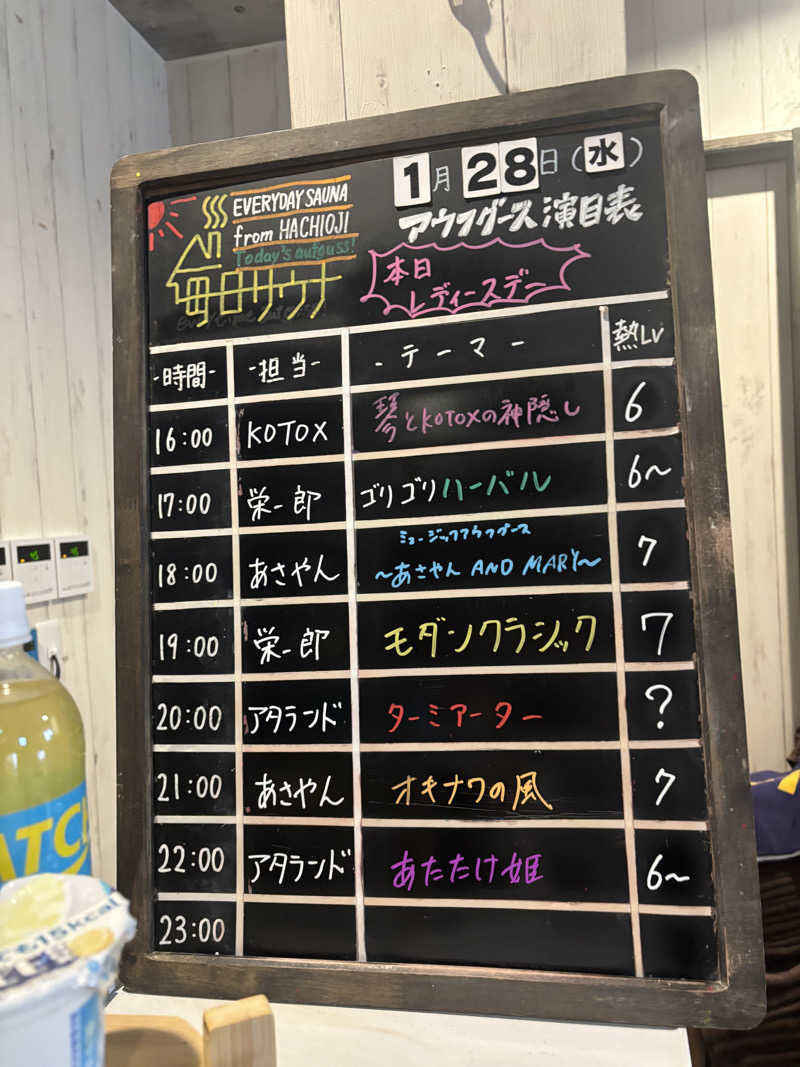 EVERYDAY SAUNA
from HACHIOJI
Today's aufguss!
毎日サウナ
1月28日(水)
アウフグース演目表
本日
レディースデー
-時間- -担当- -テーマー 熱LV
16:00 KOTOX 琴とKOTOXの神隠し 6
17:00 栄一郎 ゴリゴリハーバル 6〜
ミュージックアウフグース
18:00 あさやん 〜あさやん AND MARY〜 7
19:00 栄一郎 モダンクラシック 7
20:00 アタランド ターミアーター ?
21:00 あさやん オキナワの風 7
22:00 アタランド あたたけ姫 6〜
23:00